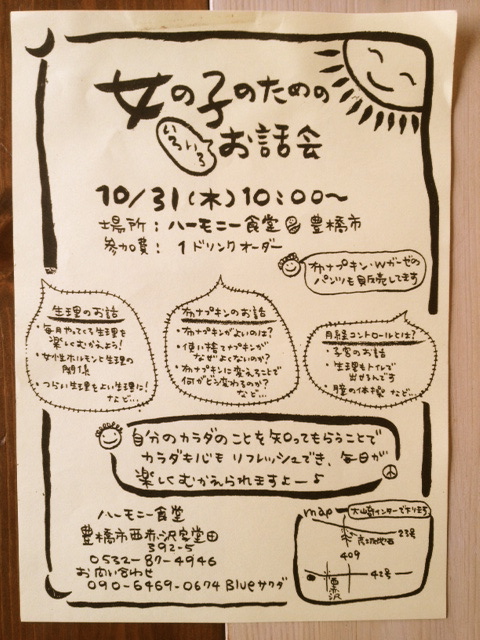 女の子のための
いろいろ
お話会
10/31(木)10:00〜
場所:ハーモニー食堂 豊橋市
参加費:1ドリンクオーダー
布ナプキン・Wガーゼの
パンツも販売してます
生理のお話
・毎月やってくる生理を
楽しくむかえよう!
・女性ホルモンと生理の
関係
・つらい生理をよい生理に!
など…
布ナプキンのお話
・布ナプキンがよいのは?
・使い捨てナプキンが
なぜよくないのか?
・布ナプキンに変えることで
何がどう変わるのか?
など…
月経コントロールとは?
・子宮のお話
・生理もトイレで
出せるんです
・膣の体操 など…
自分のカラダのことを知ってもらうことで
カラダも心もリフレッシュでき、毎日が
楽しくむかえられますよー♪
ハーモニー食堂
豊橋市西赤沢
392-5
0532-87-4946
お問い合わせ
090-6469-0674 Blueサクダ
map
大山崎インターで下ります
23号
409
42号
西赤沢